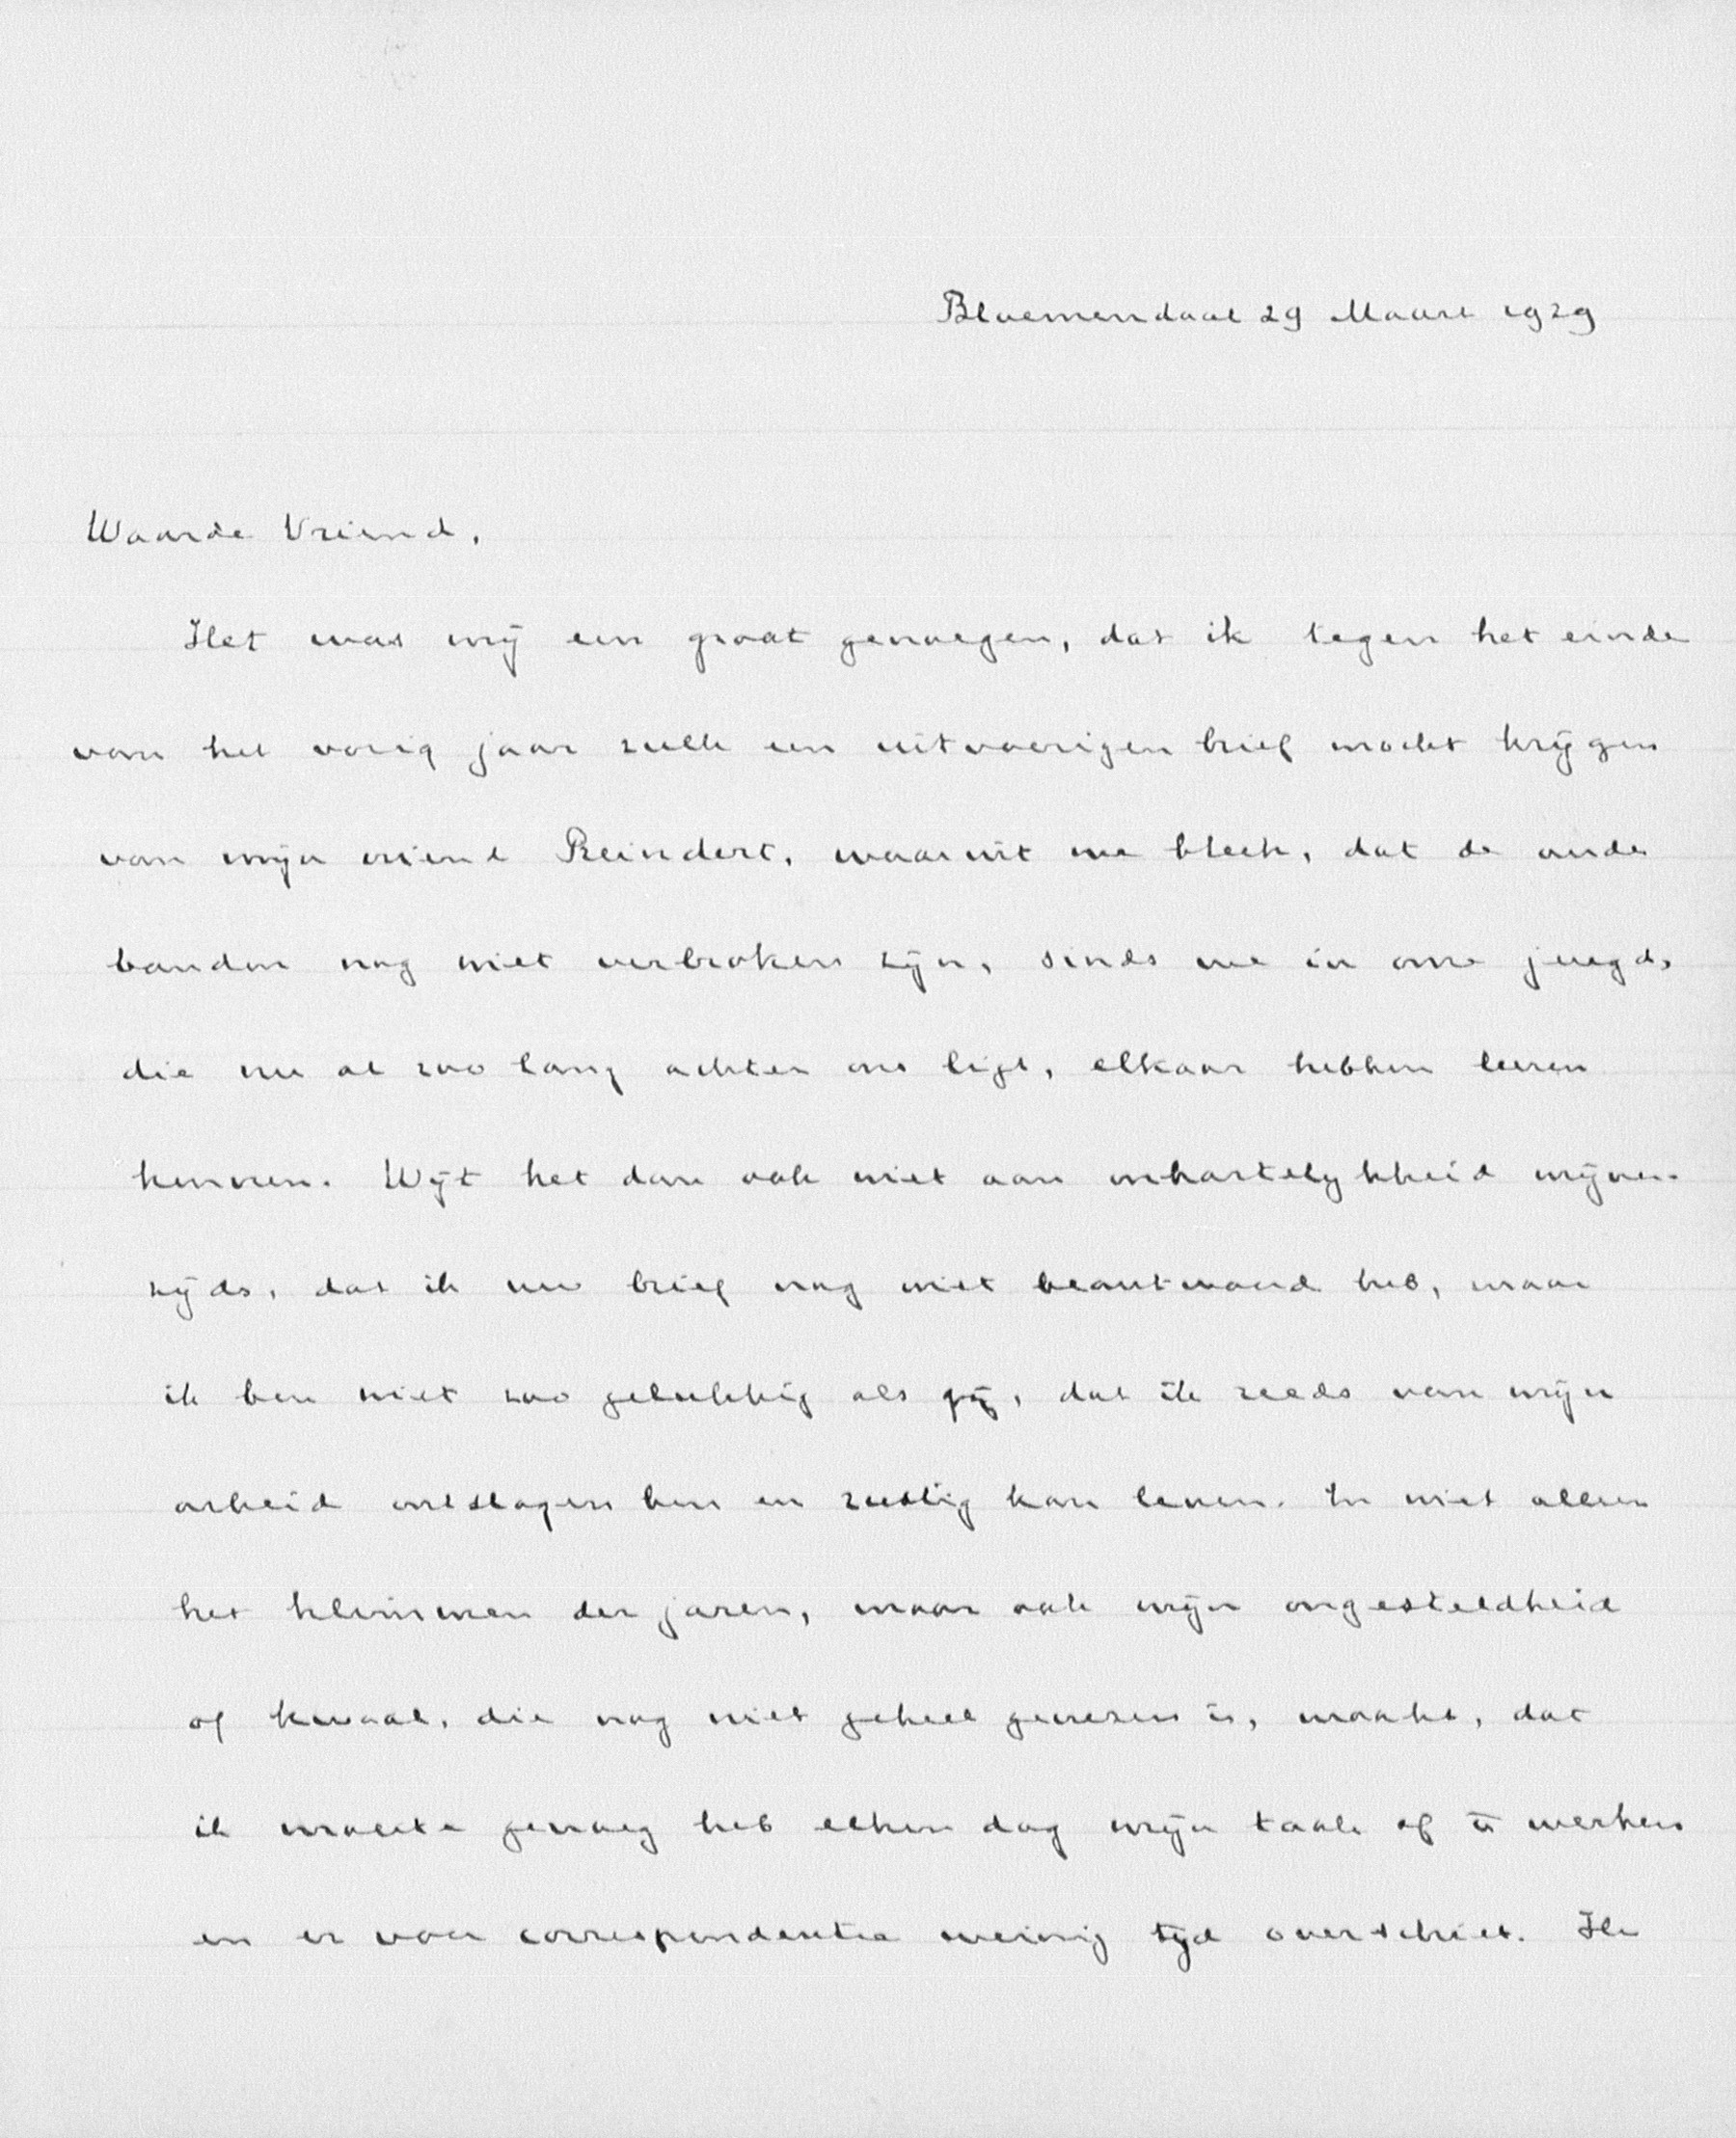 Bloemendaal 29 Maart 1929
Waarde Vriend,
Het was mij een groot genoegen, dat ik tegen het einde
van het vorig jaar zulk een uitvoerigen brief mocht krijgen
van mijn vriend Reindert, waaruit me bleek, dat de oude
banden nog niet verbroken zijn, sinds we in onze jeugd,
die nu al zoo lang achter ons ligt, elkaar hebben leeren
kennen. Wijt het dan ook niet aan onhartelykheid mijner-
zijds, dat ik uw brief nog niet beantwoord heb, maar
ik ben niet zoo gelukkig als gij, dat ik reeds van mijn
arbeid ontslagen ben en rustig kan leven. En niet alleen
het klimmen der jaren, maar ook mijn ongesteldheid
of kwaal, die nog niet geheel genezen is, maakt, dat
ik moeite genoeg heb elken dag mijn taak af te werken
en er voor correspondentie weinig tijd overschiet. Ik